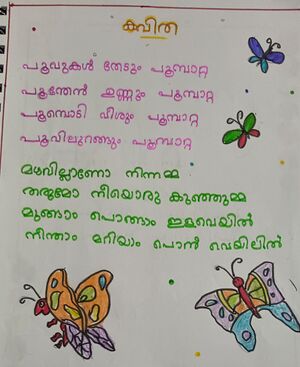 കവിത
പൂവുകൾ തേടും പൂമ്പാറ്റ
പൂന്തേൻ ഉണ്ണും പൂമ്പാറ്റ
പൂമ്പൊടി വീശും പൂമ്പാറ്റ
പൂവിലുറങ്ങും പൂമ്പാറ്റ
മഴവില്ലാണോ നിന്നമ്മ
തരുമോ നീയൊരു കുഞ്ഞുമ്മ
മുങ്ങാം പൊങ്ങാം ഇളവെയിൽ
നീന്താം മറിയാം പൊൻ വെയിലിൽ